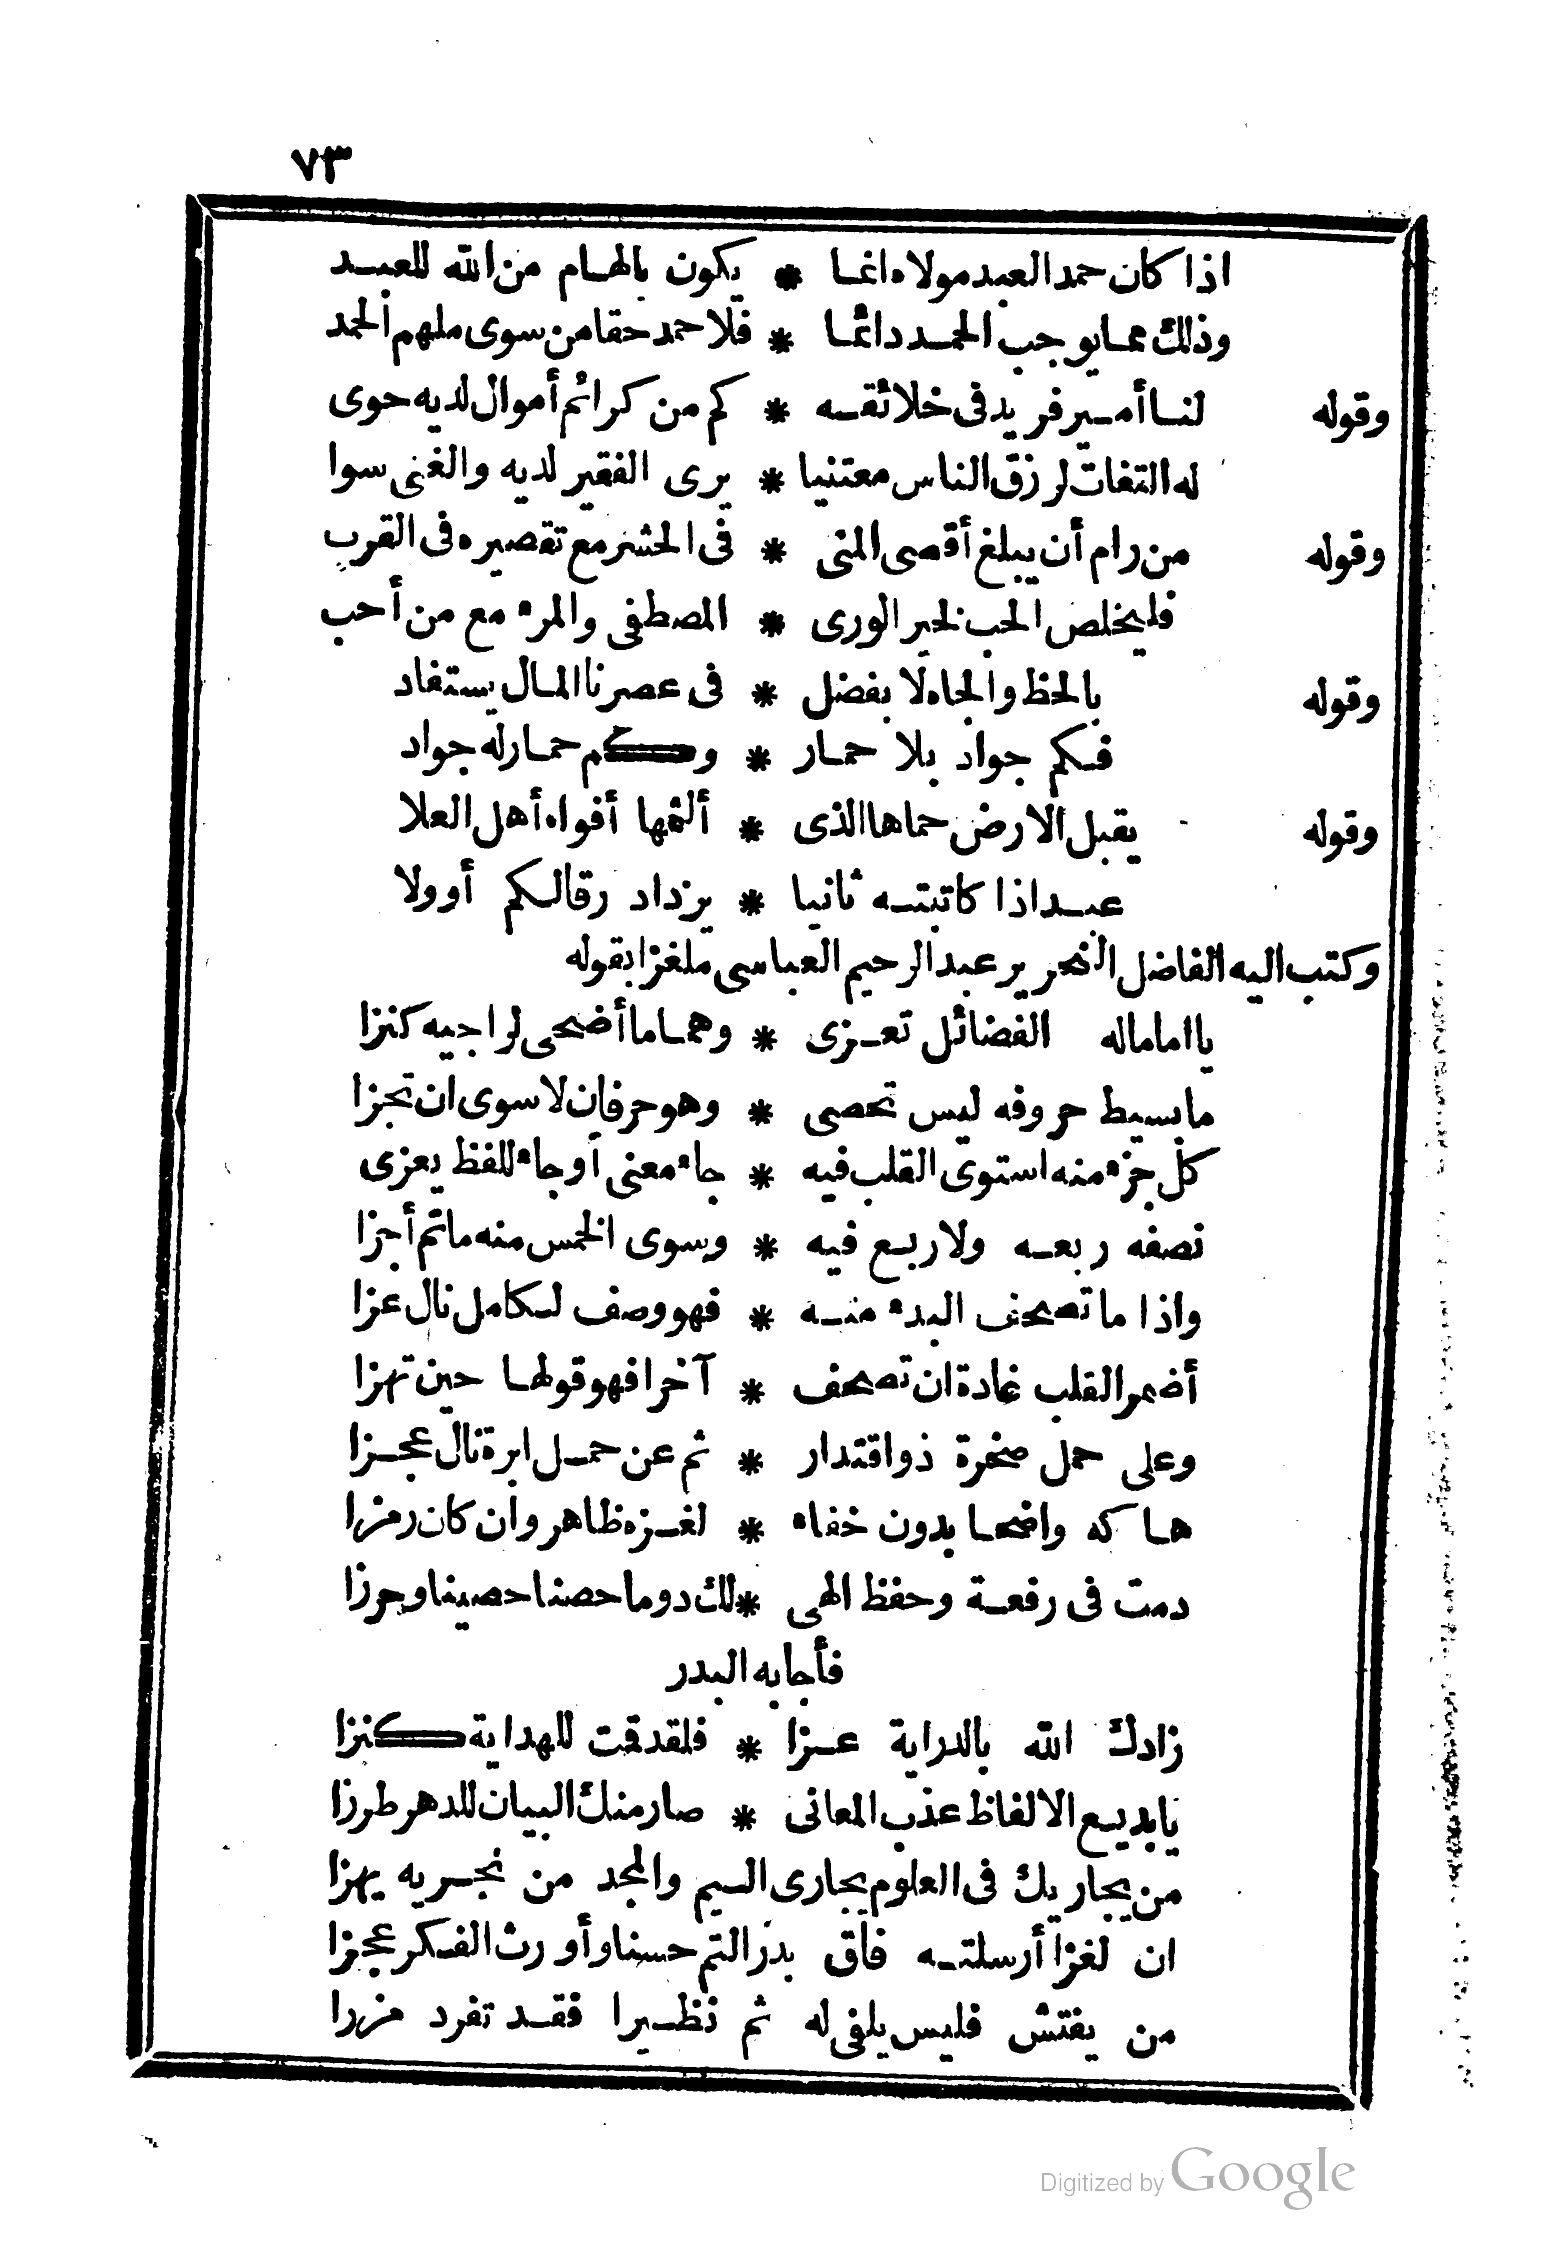 ٧٣
اذا كان حمد العبد مولاه انما * يكون بالهام من الله للعبد
وذلك مما يوجب الحمد دائما * فلا حمد حقا من سوى ملهم الحمد
وقوله لنا أمير فريد فى خلائقه * كم من كرائم أموال لديه حوى
له التفات لرزق الناس معتنيا * يرى الفقير لديه والغنى سوا
وقوله من رام أن يبلغ أقصى المنى * فى الحشر مع تقصيره فى القرب
فليخلص الحب لخير الورى * المصطفى والمرء مع من أحب
وقوله بالحظ والجاه لا بفضل * فى عصرنا المال يستفاد
فكم جواد بلا حمار * وكم حمار له جواد
وقوله يقبل الارض حماها الذى * ألثمها أفواه أهل العلا
عبد اذا كاتبته ثانيا * يزداد رقا لكم أو ولا
وكتب اليه الفاضل النحرير عبد الرحيم العباسى ملغزا بقوله
يا اماما له الفضائل تعزى * وهماما أضحى لراجيه كنزا
ما بسيط حروفه ليس تحصى * وهو حرفان لا سوى ان تجزا
كل جزء منه استوى القلب فيه * جاء معنى أو جاء للفظ يعزى
نصفه ربعه ولا ربع فيه * وسوى الخمس منه ما تم أجزا
واذا ما تصحف البدء منه * فهو وصف لكامل نال عزا
أضمر القلب غادة ان تصحف * آخرا فهو قولها حين تهزا
وعلى حمل صخرة ذو اقتدار * ثم عن حمل ابرة نال عجزا
هاكه واضحا بدون خفاء * لغزه ظاهر وان كان رمزا
دمت فى رفعة وحفظ الهى * لك دوما حصنا حصينا وحرزا
فأجابه البدر
زادك الله بالدراية عزا * فلقد قت للهداية كنزا
يا بديع الالفاظ عذب المعانى * صار منك البيان للدهر طرزا
من يجاريك فى العلوم يجارى اليم والمجد من نجريه يهزا
ان لغزا أرسلته فاق بدر التم حسنا وأورث الفكر عجزا
من يفتش فليس يلفى له ثم نظيرا فقد تفرد مزرا
Digitized by Google